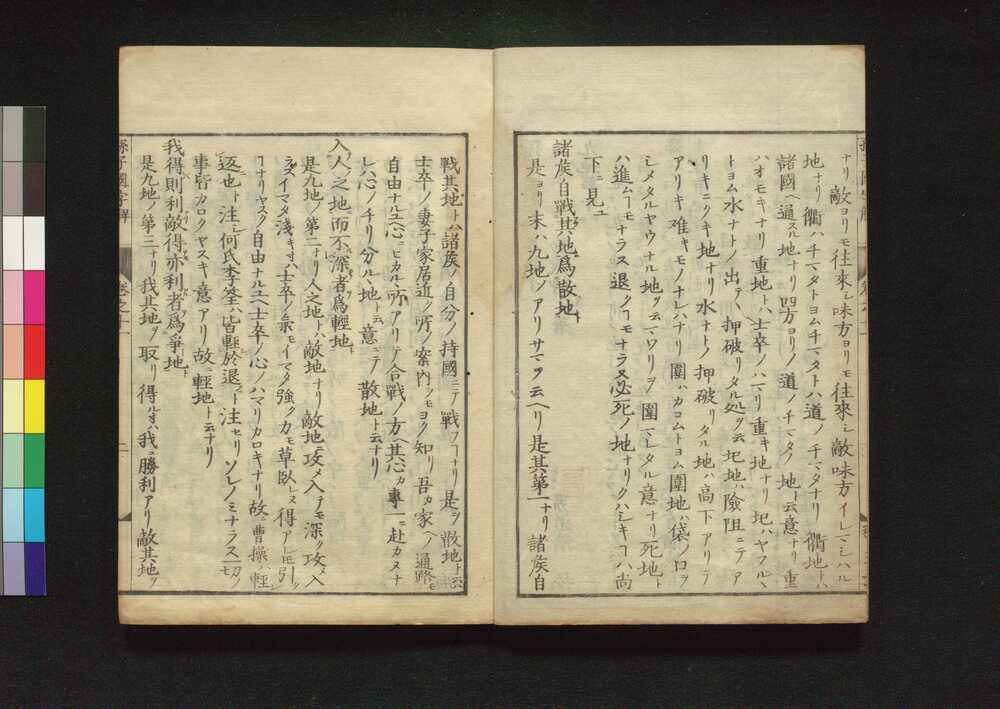 ナリ敵ヨリモ往來シ味方ヨリモ往來シ敵味方イレマシハル
地ナリ衢ハチマタトヨムチマタトハ道ノチマタナリ衢地トハ
諸國ヘ通スル地ナリ四方ヨリノ道ノチマタノ地ト云意ナリ重
ハオモキナリ重地トハ士卒ノハマリ重キ地ナリ圮ハヤフルヽ
トヨム水ナトノ出テ押破リタル処ヲ云圮地ハ險阻ニテア
リキニクキ地ナリ水ナトノ押破リタル地ハ高下アリテ
アリキ難キモノナレハナリ圍ハカコムトヨム圍地ハ袋ノ口ヲ
シメタルヤウナル地ヲ云マワリヲ圍マレタル意ナリ死地ト
ハ進ムコモナラス退クコモナラス必死ノ地ナリクハシキコハ尚
下ニ見ユ
諸矦自戰其地爲散地
是ヨリ末ハ九地ノアリサマヲ云ヘリ是其第一ナリ諸矦自
戰其地トハ諸矦ノ自分ノ持國ニテ戰フコナリ是ヲ散地ト云
士卒ノ妻子家居近所ノ案内ヲモヨク知リ吾カ家ヘノ通路モ
自由ナルユヘ心ニヒカルヽ所アリテ合戰ノ方ヘ其心カ專一ニ赴カタナ
レハ心ノチリ分ルヽ地ト云意ニテ散地ト云ナリ
入人之地而不深者爲輕地
是九地ノ第二ナリ人之地トハ敵地ナリ敵地攻メ入テモ深ク攻メ入
ラスイマタ淺キ時ハ士卒ノ氣モイマタ強クカモ草臥レス得
コナリヤスク自由ナルユヘ士卒ノ心ノハマリカロキナリ故ニ曹操ハ輕
返也ト注シ何氏李筌ハ皆輕於退ト注セリソレノミナラス一切ノ
事皆カロクヤスキ意アリ故ニ輕地ト云ナリ
我得則利敵得亦利者爲爭地
是九地ノ第三ナリ我其地ヲ取リ得レハ我ニ勝利アリ敵其地ヲ
孫子國字解
卷之十一